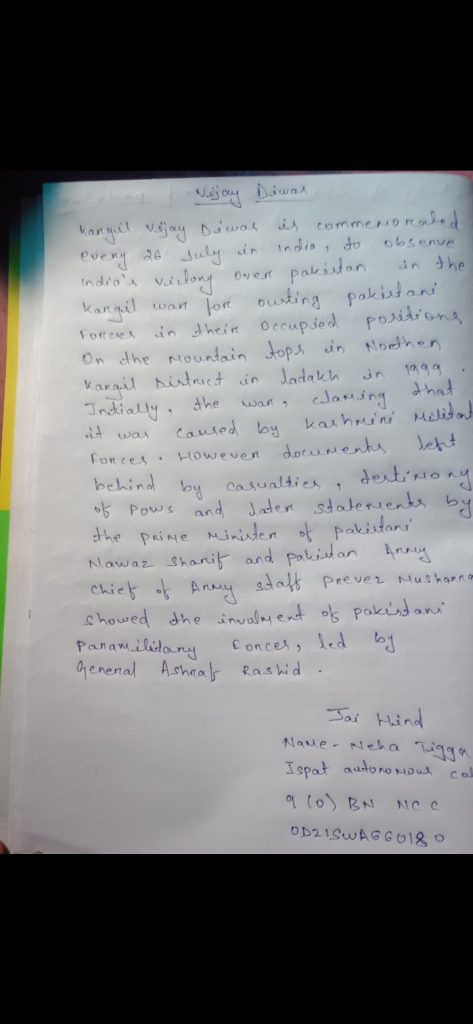 Vijay Diwas
Kargil Vijay Diwas is commemorated
every 26 July in India, to observe
India's victory over pakistan in the
Kargil war for ousting pakistani
Forces in their Occupied positions
On the Mountain tops in Noethen
Kargil District in ladakh in 1999.
Indially, the war, claming that
it was caused by Kashmiri Militant
Forces. However documents left
behind by casualties, testimony
of POWs and later statements by
the prime Minister of pakistani
Nawaz Sharif and pakistan Army
Chief of Army staff Prevez Musharra
showed the invalment of pakistani
paramilitary Forces, led by
General Ashraf Rashid.
Jai Hind
Name - Neha Tigga
Ispat autonomous col
9 (O) BN NCC
OD21SWA660180